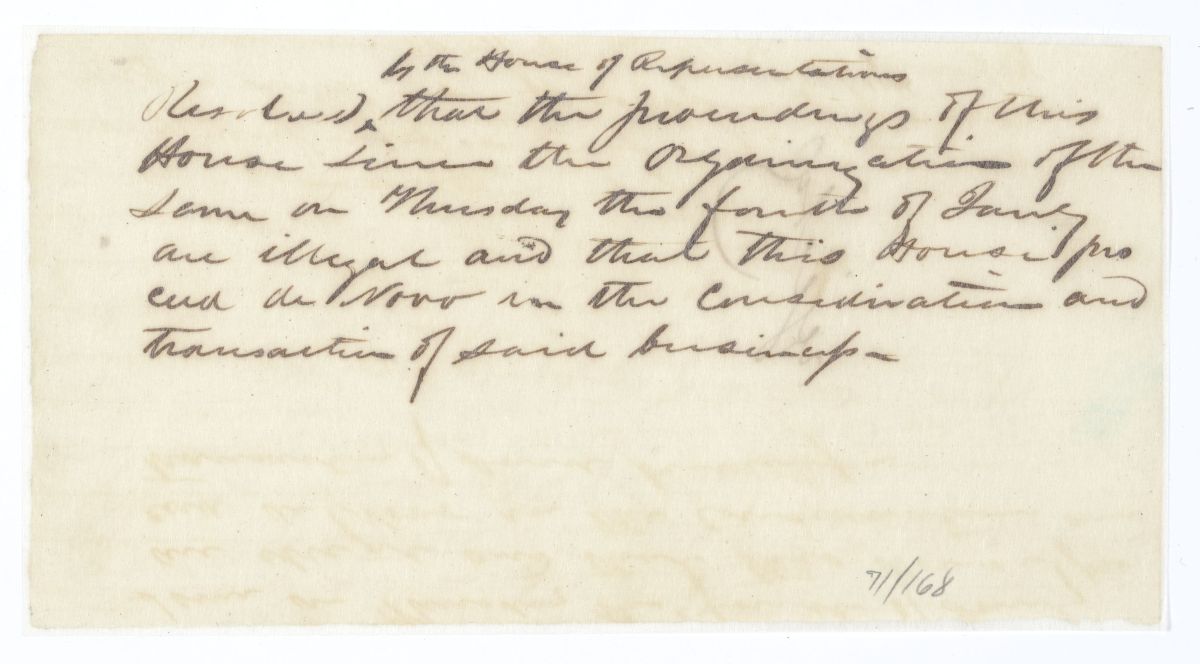 by the House of Representatives
Resolved, that the proceedings of this
House since the Organization of the
same on Thursday the fourth of Jany
are illegal and that this House pro
ceed de Novo in the Consideration and
transaction of said business
71/168